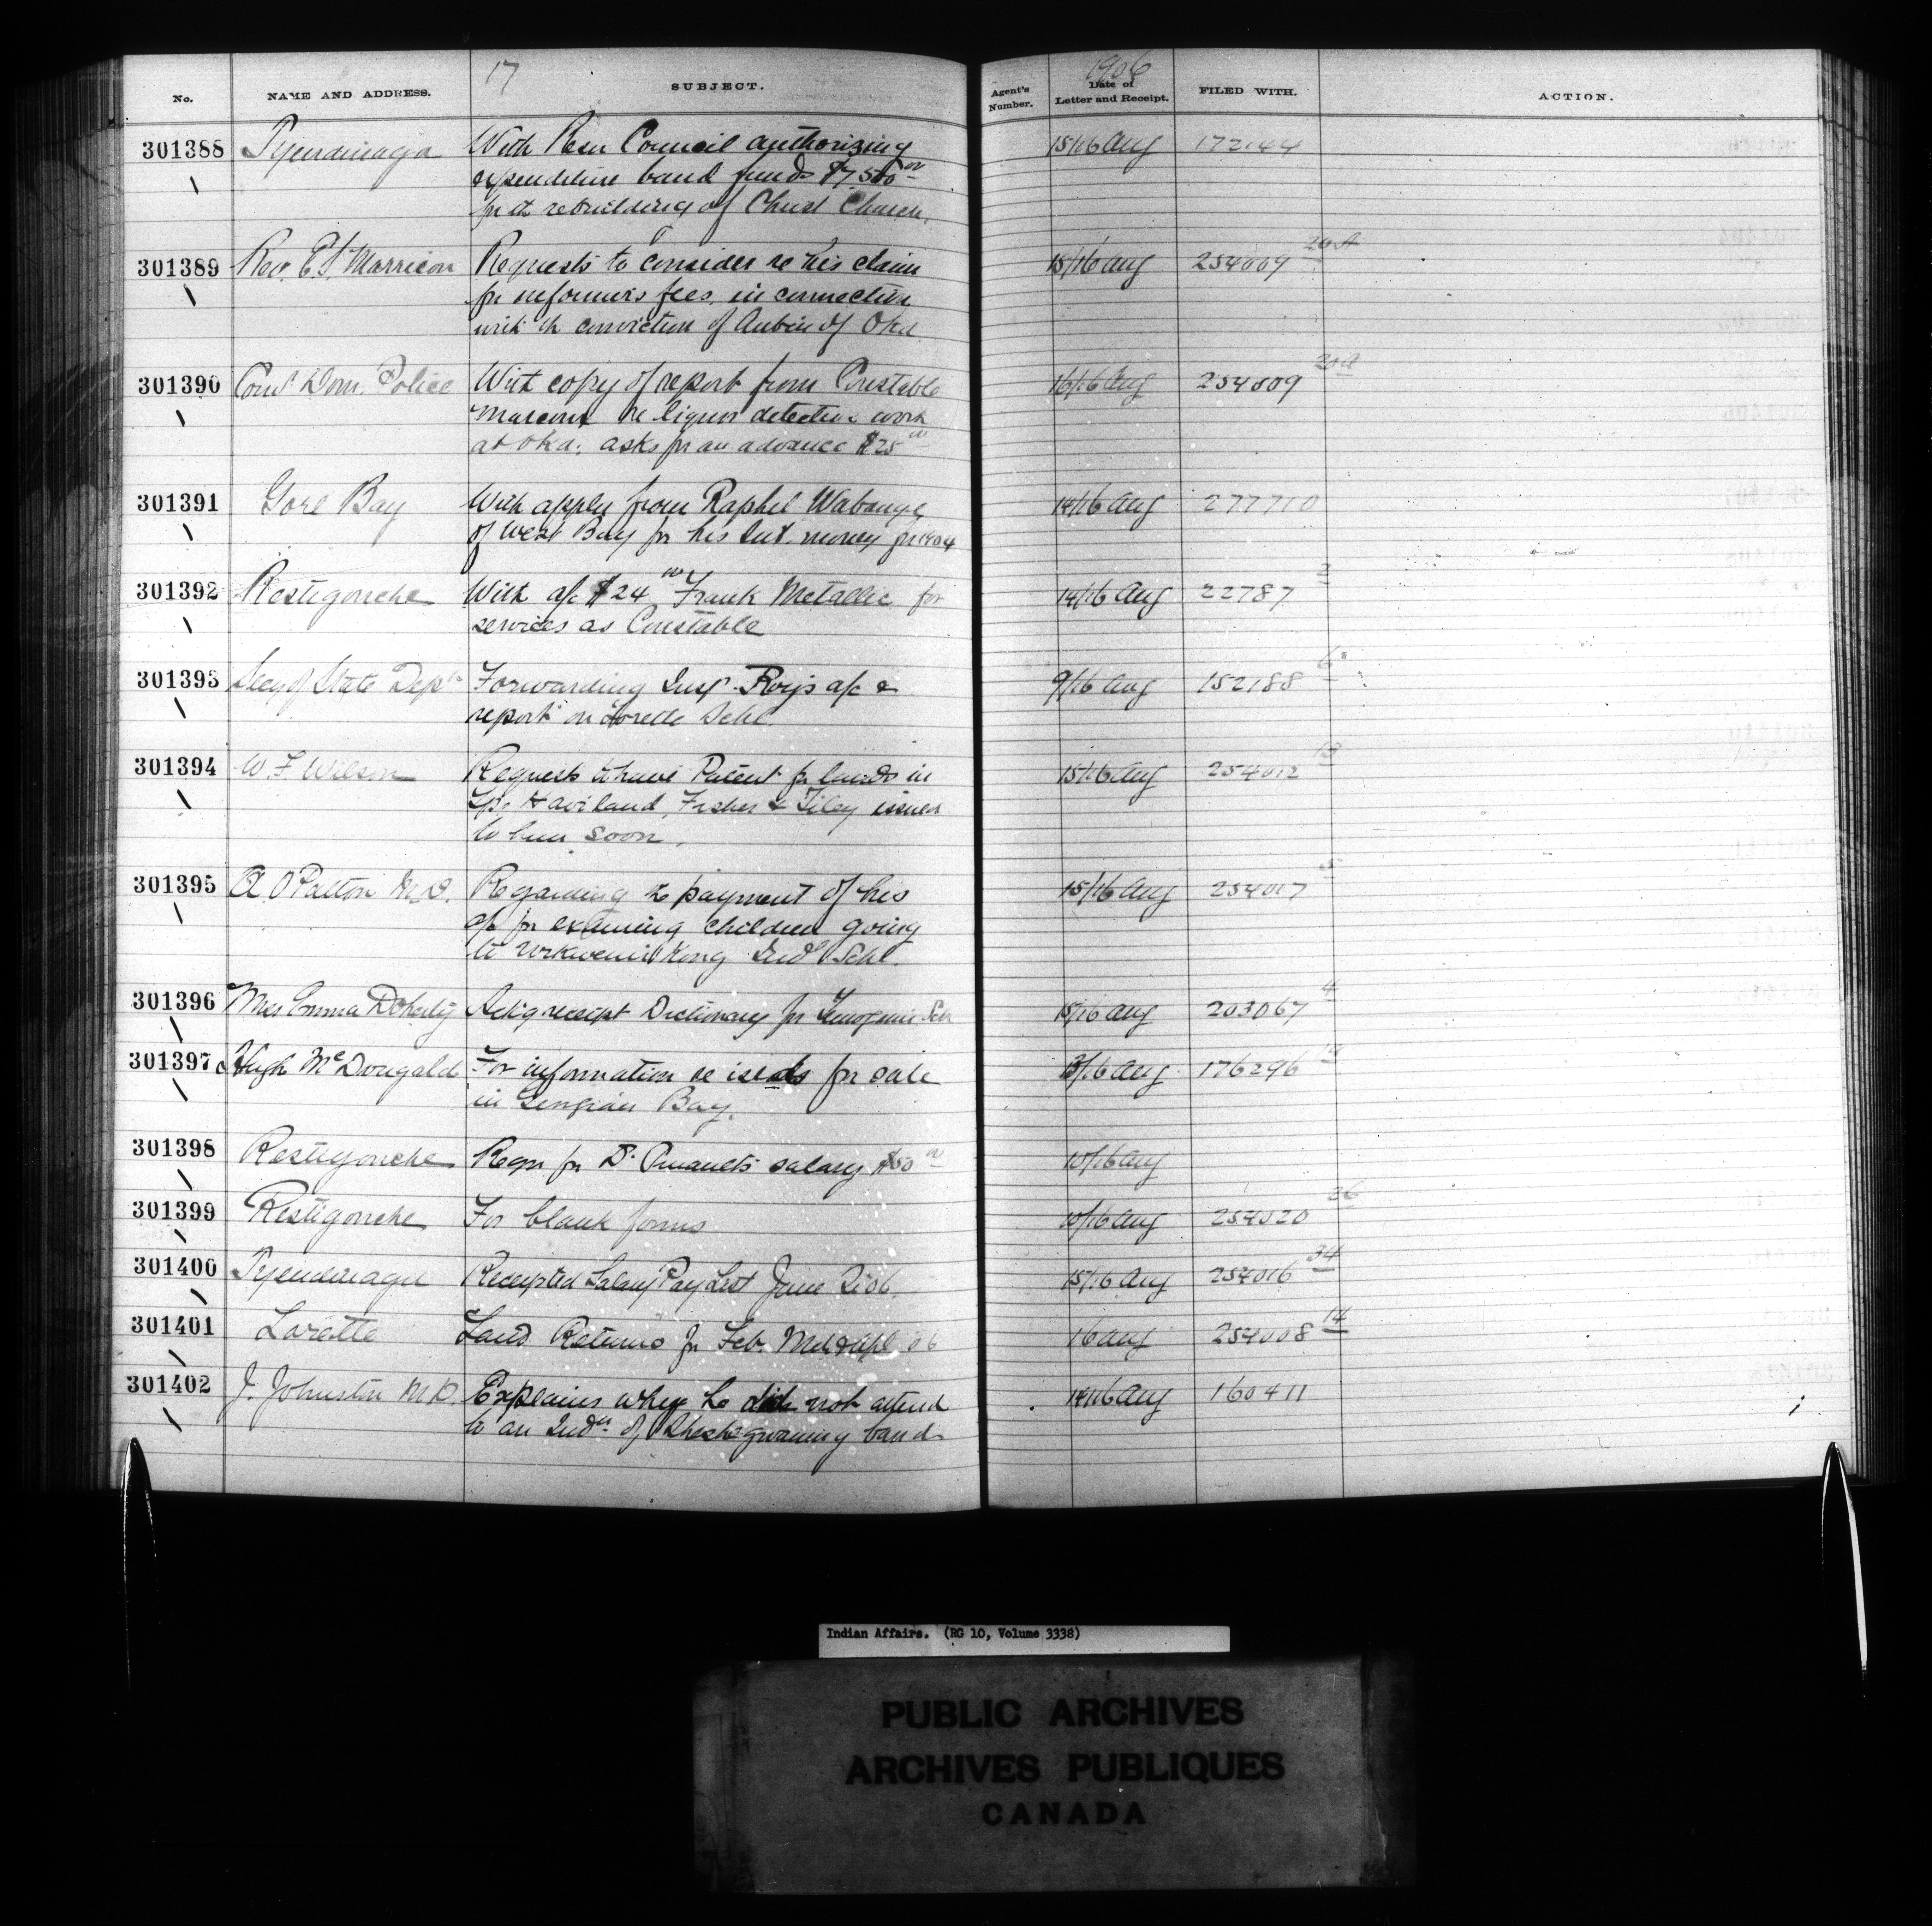 17
1906
No. NAME AND ADDRESS. SUBJECT. Agent's Number. Date of Letter and Receipt. FILED WITH. ACTION.
301388 Tyendinaga With Resn Council authorizing 15/16 Aug 172144
expenditure band funds $7,500 00
for th rebuilding of Christ Church.
301389 Rev. Marrison Requests to consider re his claim 15/16 Aug 254009 20A
for informer's fees, in connection
with th conviction of Aubin of Oka
301390 Comr Dom. Police With copy of report from Constable 16/16 Aug 254009 20A
Marcoux re liquor detective work
at Oka; asks for an advance $25 00
301391 Gore Bay With appln from Raphel 14/16 Aug 277710
of West Bay for his Int. money for 1904
301392 Restigouche With a/c $24 00 Frank Metallic for 14/16 Aug 22787 2
services as Constable
301393 Secy of State Dept Forwarding Insp. Roy's a/c & 9/16 Aug 152188 6
report on Lorette Schl.
301394 W. F. Wilson Requests to have Patent for lands in 15/16 Aug 254012 13
Tps. Haviland, Fisher & Tilley issued
to him soon.
301395 A. O Patton M.D. Regarding the payment of his 15/16 Aug 254017 5
a/c for examining children going
to Wikwemikong Ind Schl.
301396 Mrs Emma Doherty Ackg receipt Dictionary for Schl 15/16 Aug 203067 4
301397 Hugh McDougald For information re islds for sale 13/16 Aug 176296
in Georgian Bay.
301398 Restigouche Reqn for Dr. Pinault's salary $50 00 10/16 Aug
301399 Restigouche For blank forms 10/16 Aug 254020 26
301400 Tyendinaga Receipted Salary Pay List June 06. 15/16 Aug 254016 34
301401 Lorette Land Returns for Feb. Mch & Apl 06 16 Aug 254008 14
301402 J. Johnston M.D. Explains why he did not attend 14/16 Aug 160411
to an Indn of Sheshegwaning band
Indian Affairs. (RG 10, Volume 3338)
PUBLIC ARCHIVES
ARCHIVES PUBLIQUES
CANADA